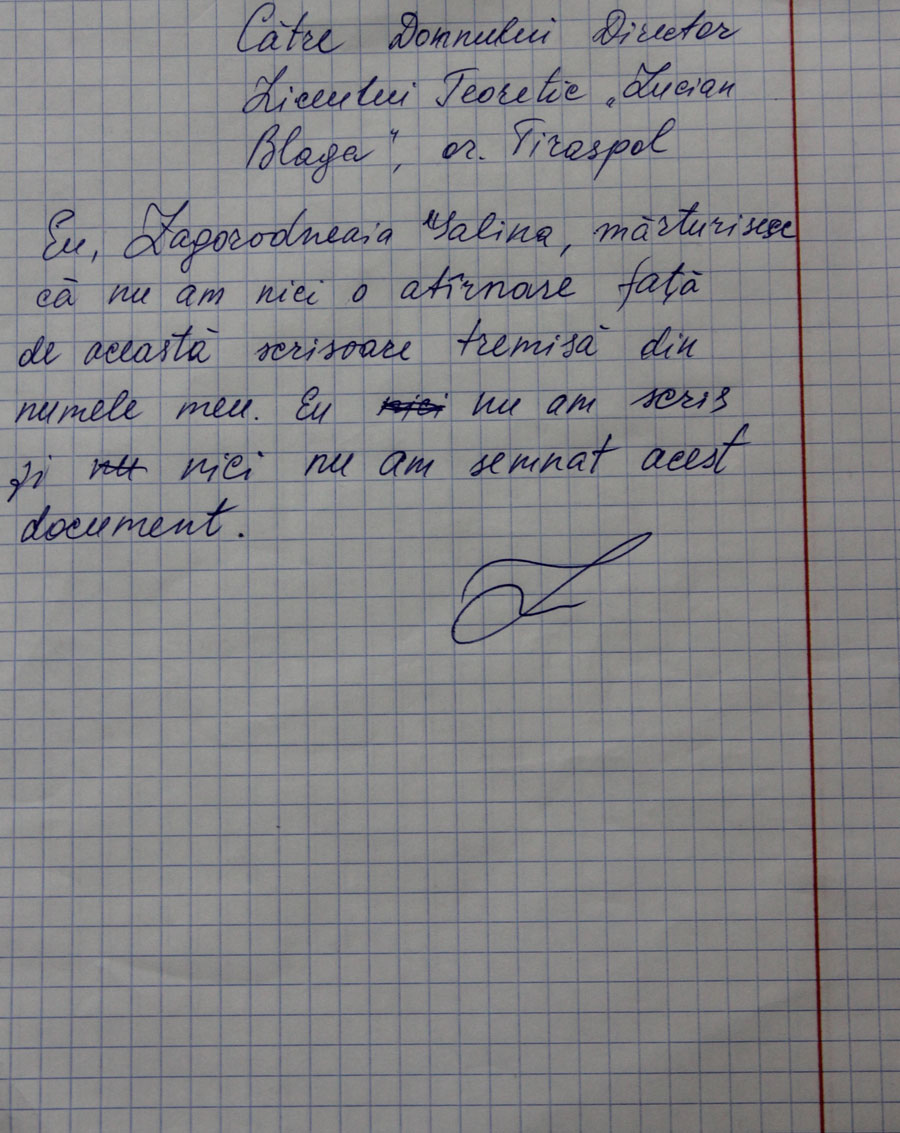 Către Domnului Director
Liceului Teoretic „Lucian
Blaga", or. Tiraspol
Eu, Zagorodneaia Galina, mărturisesc
că nu am nici o atîrnare față
de această scrisoare tremisă din
numele meu. Eu nici nu am scris
și nu nici nu am semnat acest
document.